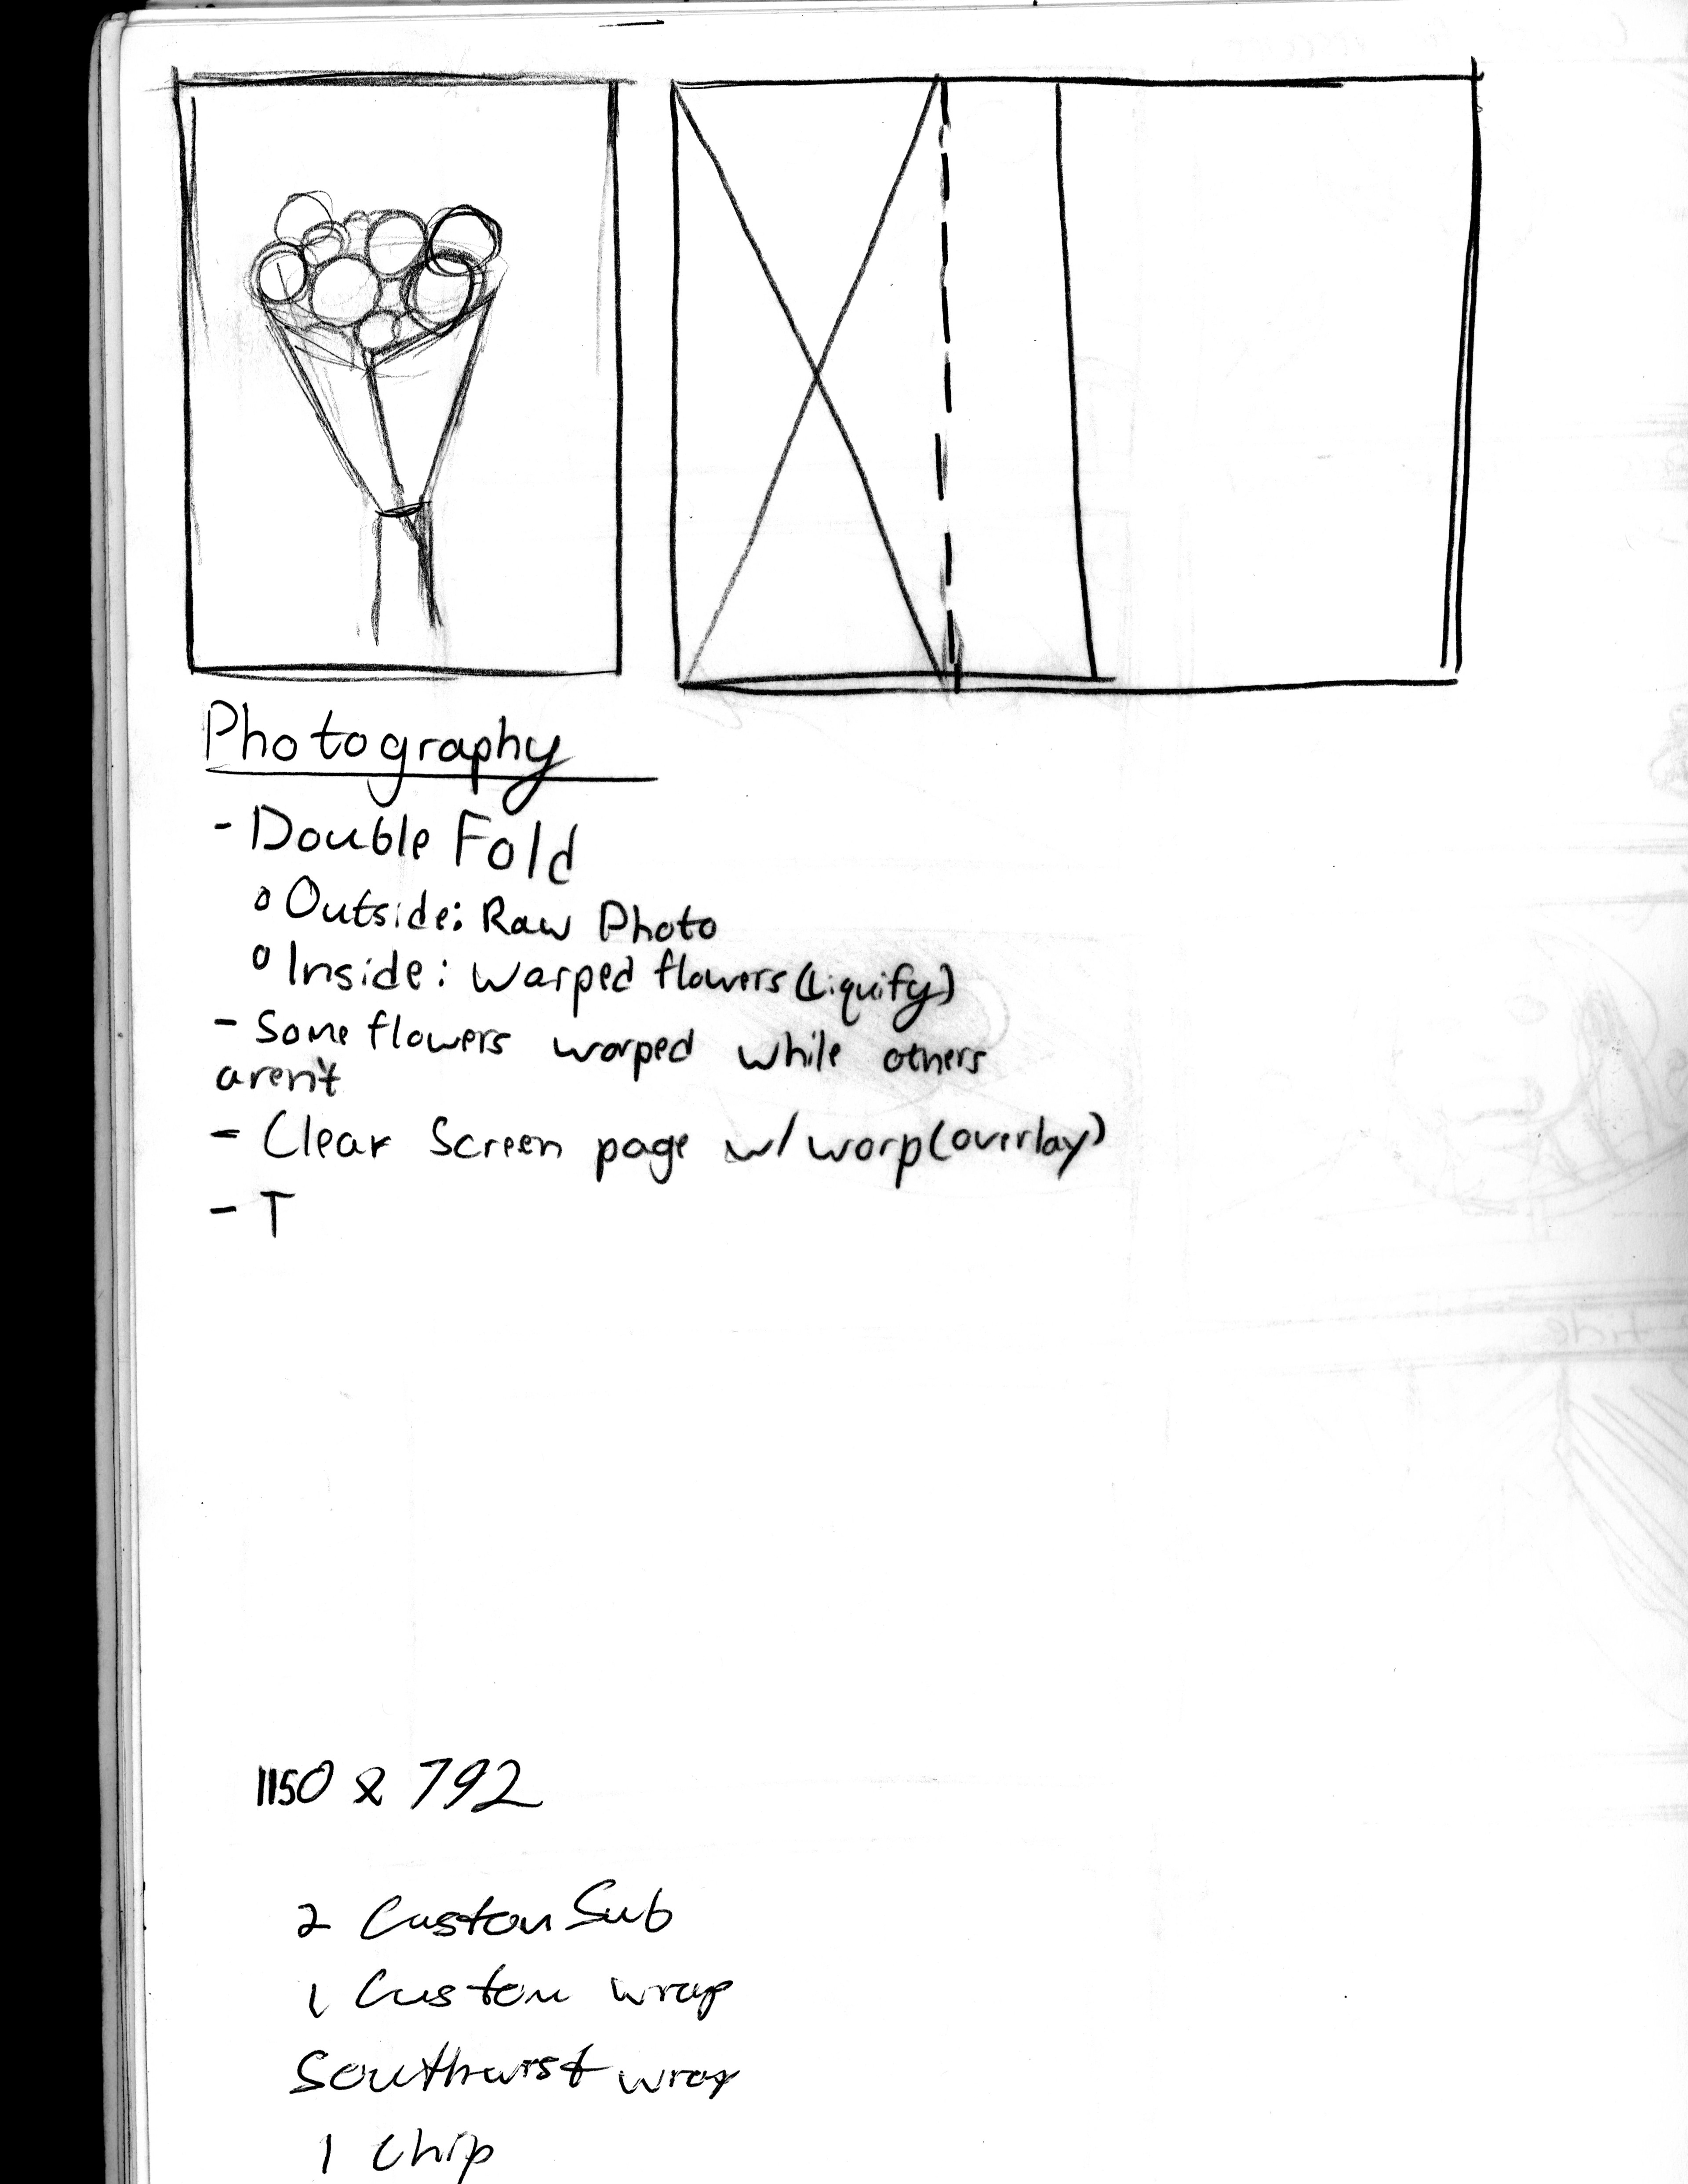 Photography
- Double Fold
o Outside: Raw Photo
o Inside: Warped flowers (Liquify)
- Some flowers warped while others
aren't
- Clear Screen page w/ warp (overlay)
- T
1150 x 792
2 Custom Sub
1 Custom wrap
Southwest wrap
1 Chip